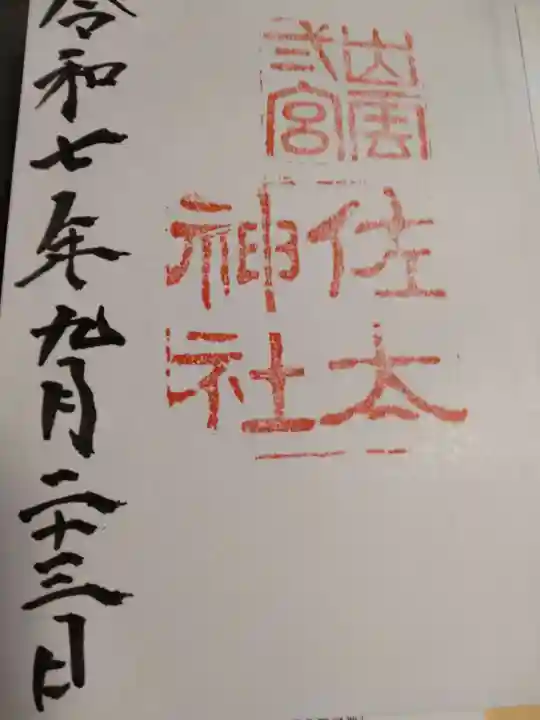 出雲
弍宮
佐太
神社
令和七年九月二十三日